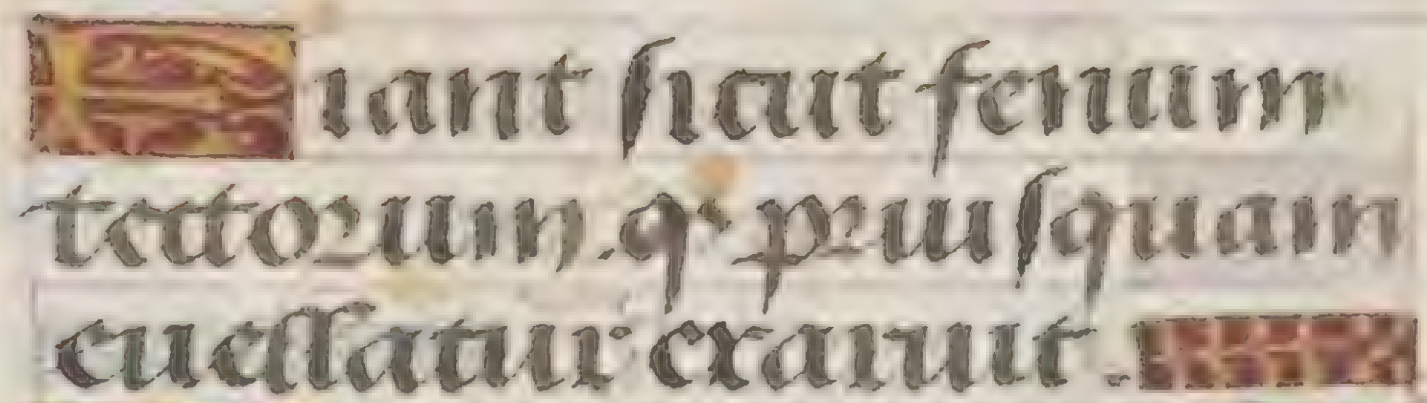 Fiant sicut fenum
tectorum q priusquam
euellatur exaruit .